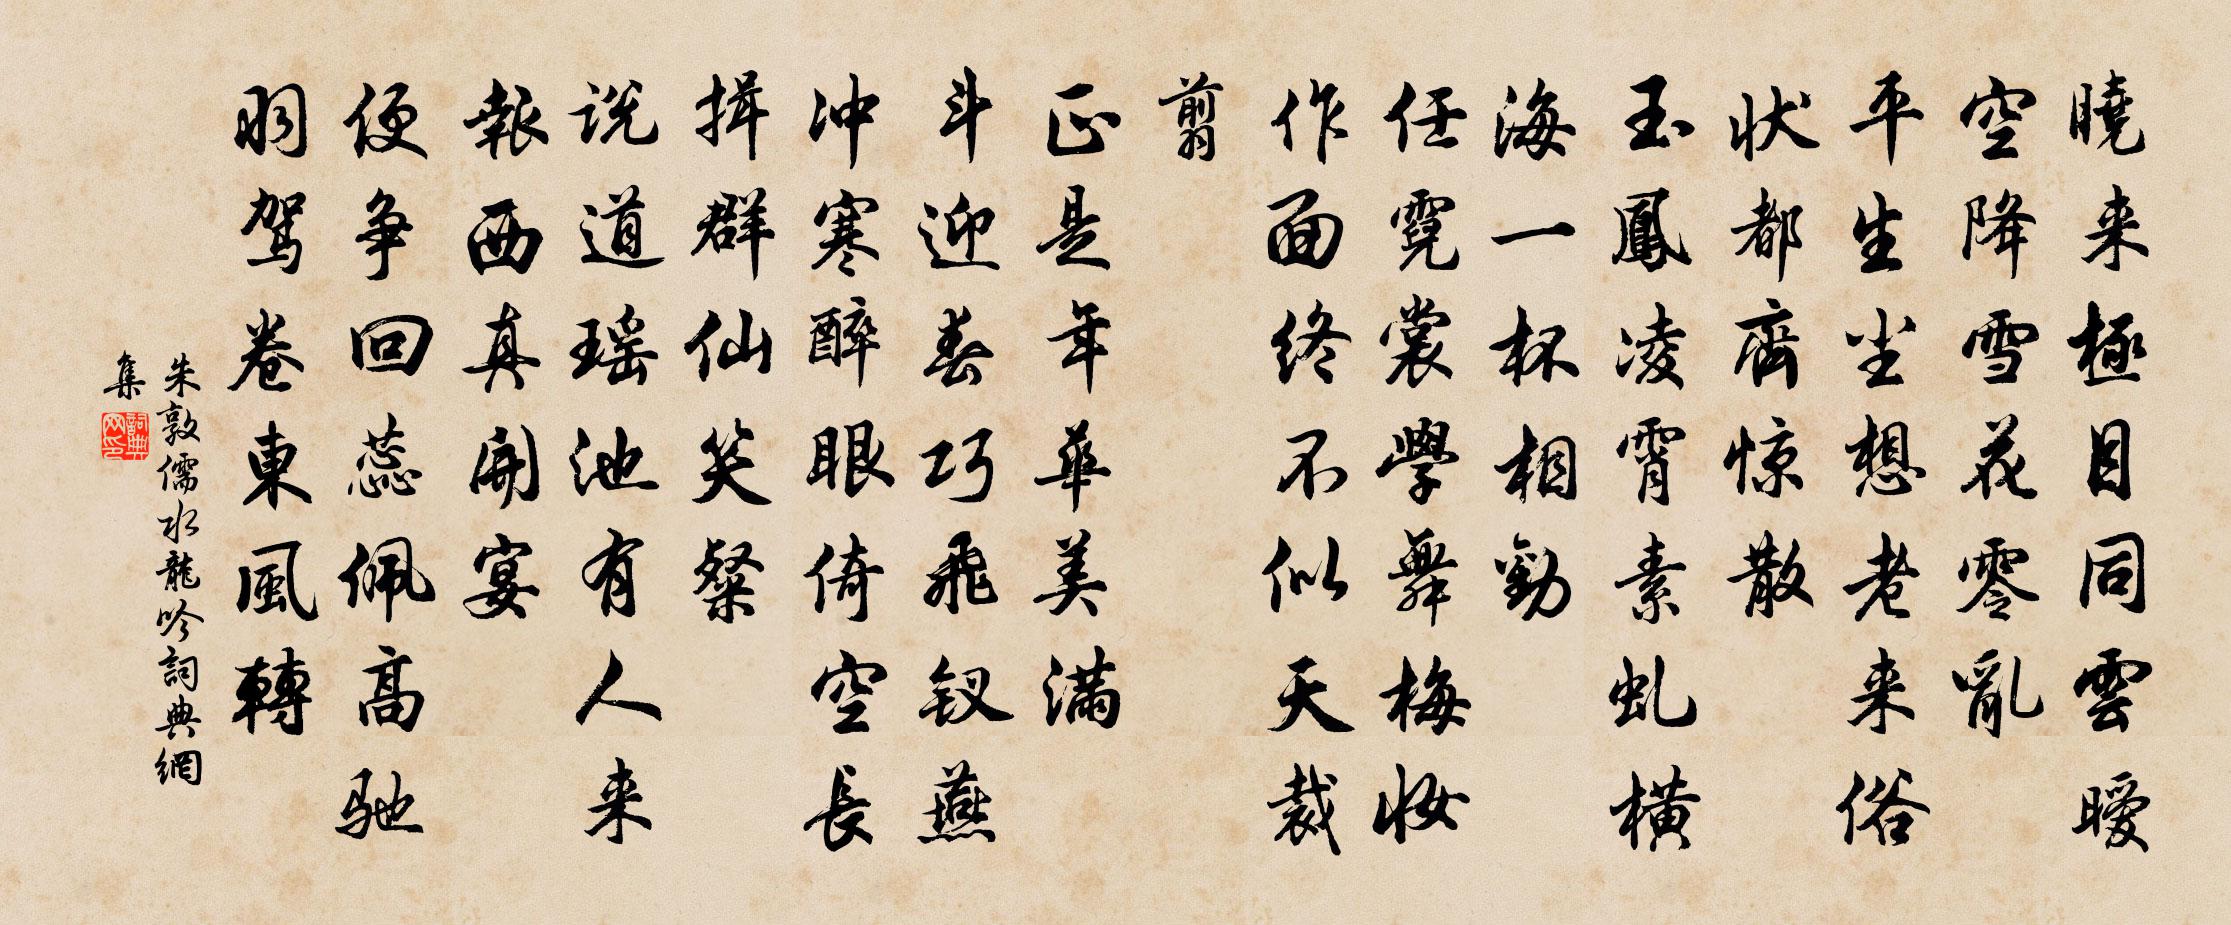 曉来極目同雲曖
空降雪花零亂
平生尘想老来俗
状都齊惊散
玉鳳凌霄素虬横
海一杯相勸
任霓裳學舞梅妆
作面终不似天裁
剪
正是年華美满
斗迎春巧飛钗燕
冲寒醉眼倚空長
揖群仙笑粲
说道瑶池有人来
報西真開宴
便争回蕊佩高驰
羽驾卷東風轉
朱敦儒水龍吟詞典網
集
詞典
网印